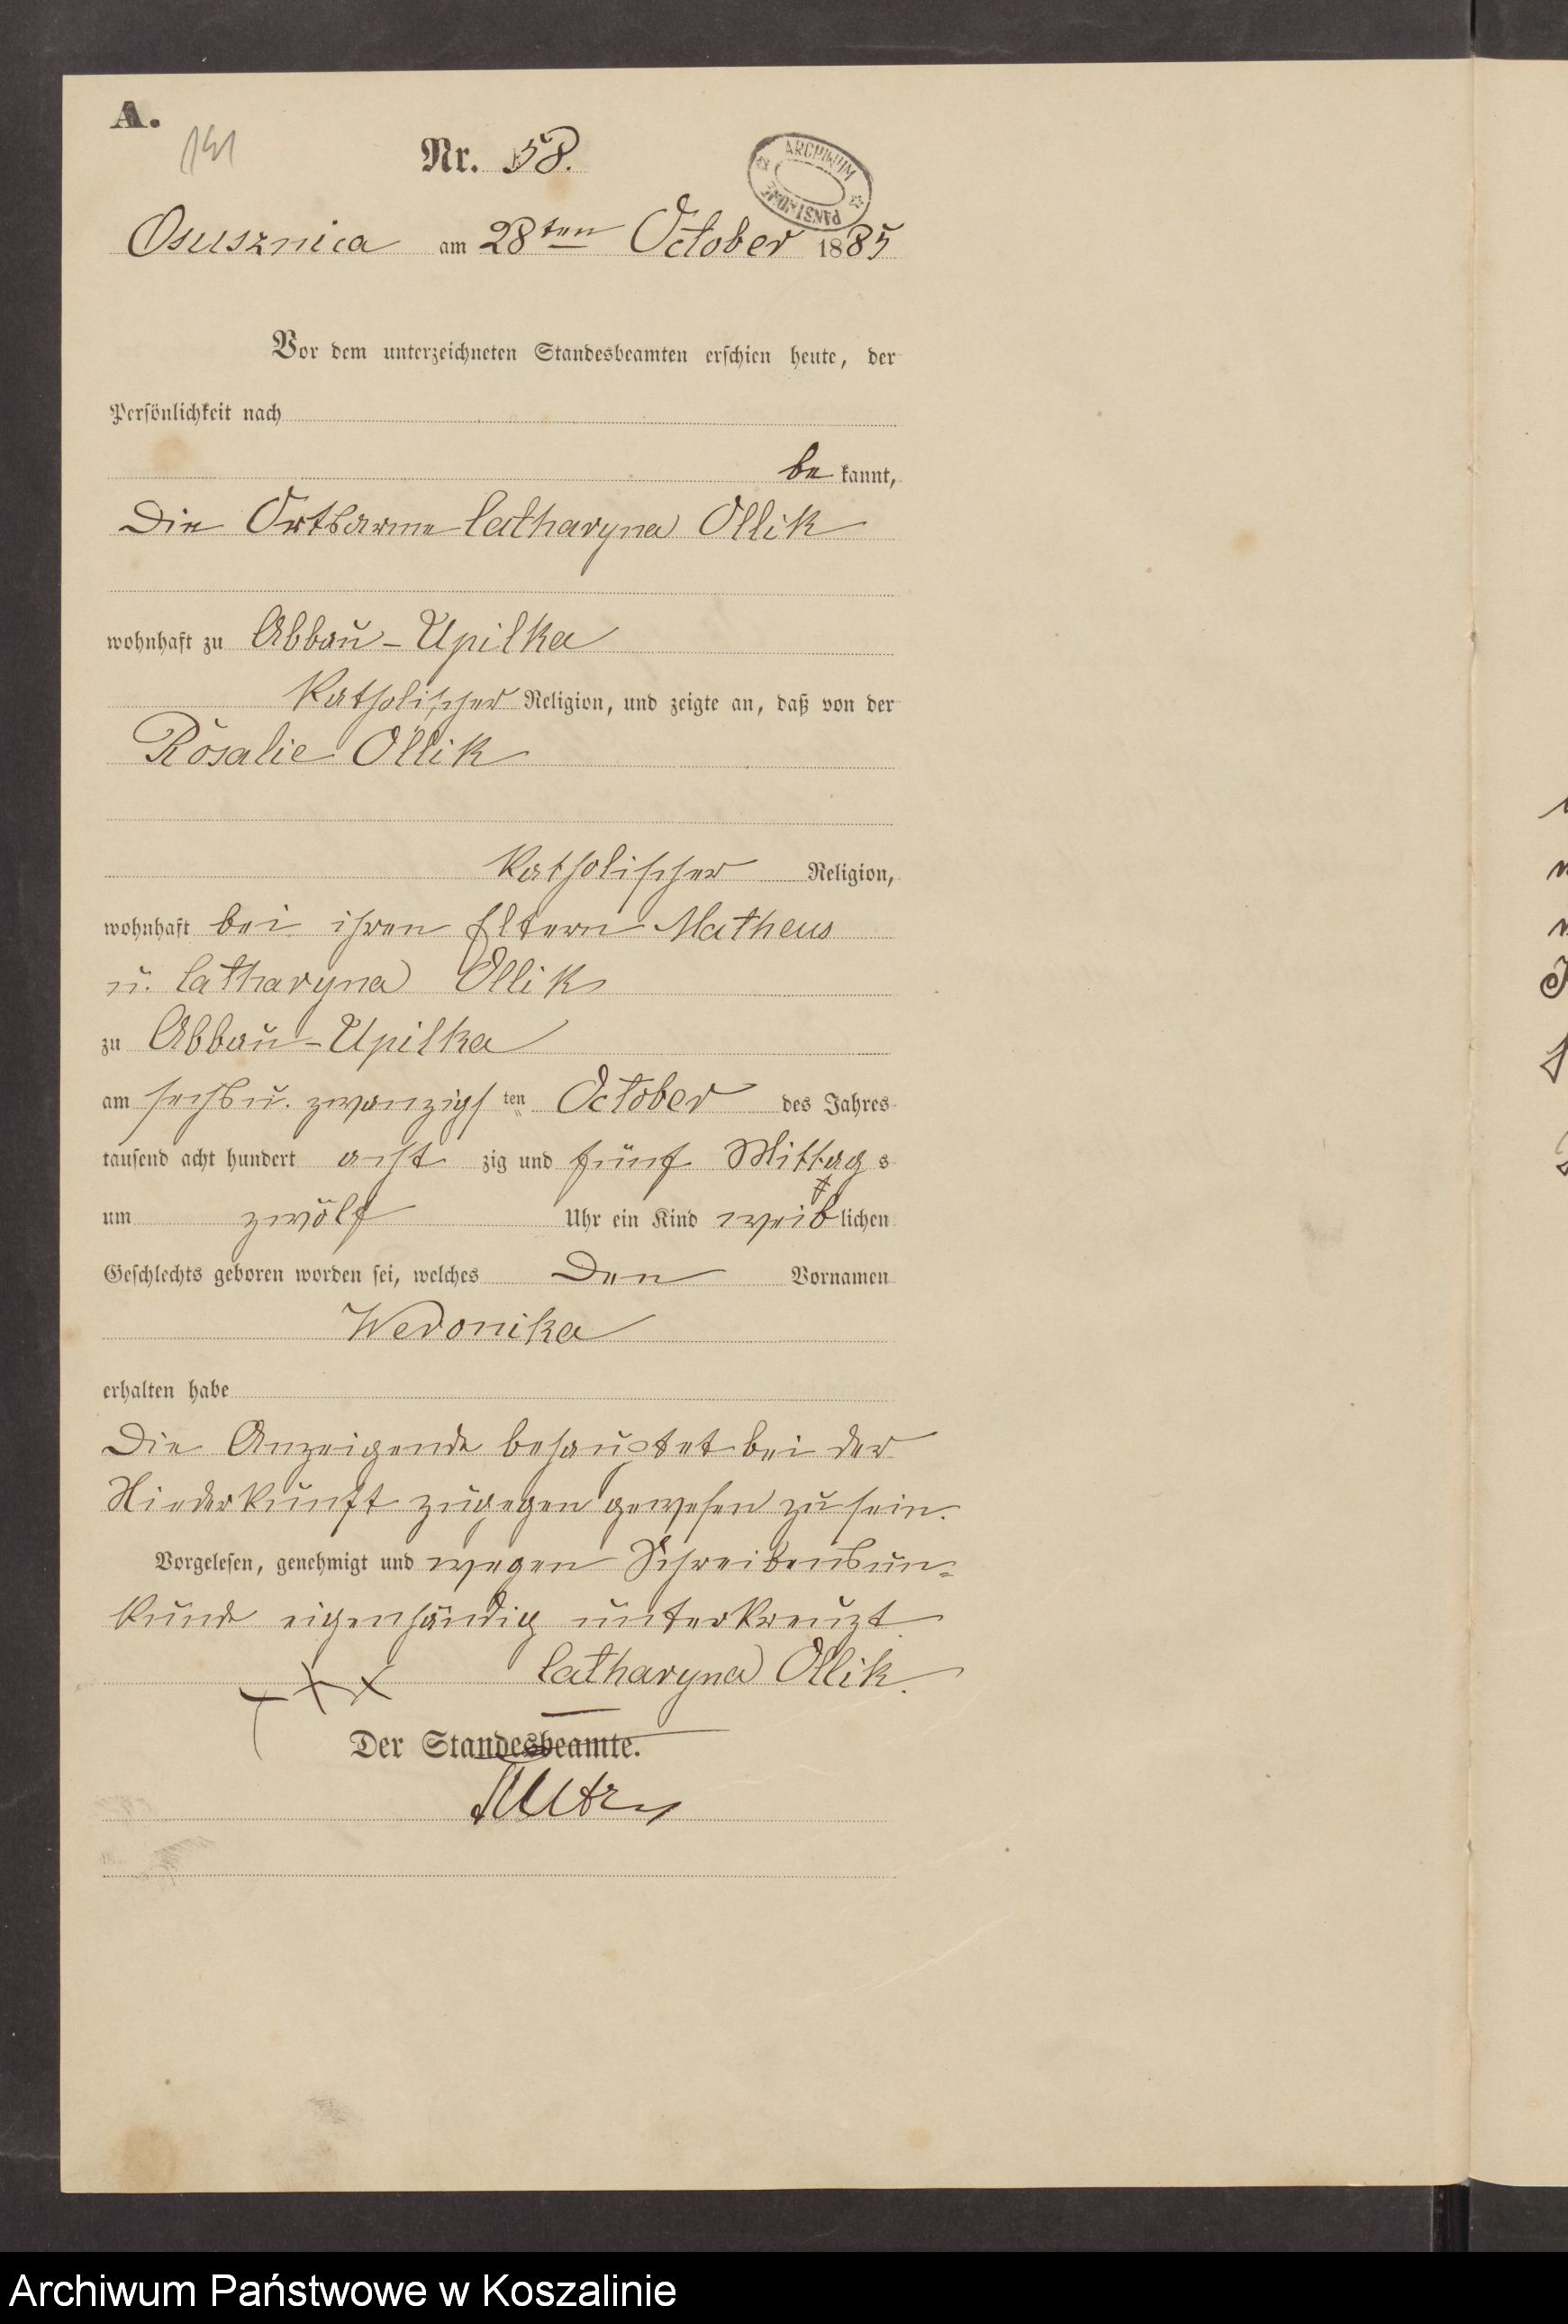 A.
141
Nr. 58.
ARCHIWUM PAŃSTWOWE
Osusznica am 28ten October 1885
Vor dem unterzeichneten Standesbeamten erschien heute, der
Persönlichkeit nach
be kannt,
Die Ortsarme Catharyna Ollik
wohnhaft zu Abbau-Upilka
Katholischer Religion, und zeigte an, daß von der
Rosalie Ollik
Katholischer Religion,
wohnhaft bei ihren Eltern Matheus
u. Catharyna Ollik
zu Abbau-Upilka
am sechsu. zwanzigs ten October des Jahres
tausend acht hundert acht zig und fünf Mittag s
um zwölf Uhr ein Kind weib lichen
Geschlechts geboren worden sei, welches den Vornamen
Weronika
erhalten habe
Die Anzeigende behauptet bei der
Niederkunft zugegen gewesen zu sein.
Vorgelesen, genehmigt und wegen Schreibensun-
kunde eigenhändig unterkreuzt
+ + + Catharyna Ollik.
Der Standesbeamte.
Archiwum Państwowe w Koszalinie